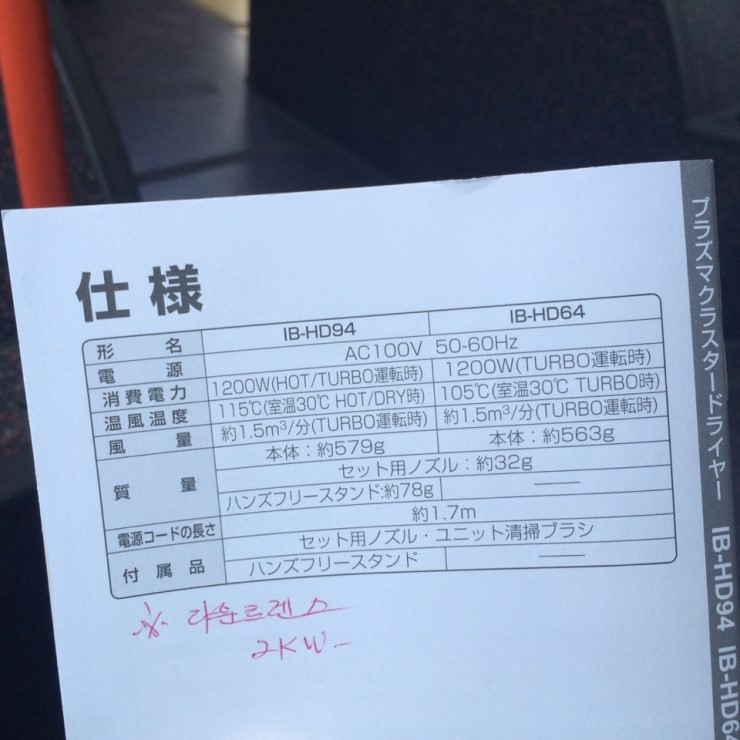 仕様
形名 IB-HD94 IB-HD64
電源 AC100V 50-60Hz
消費電力 1200W(HOT/TURBO運転時) 1200W(TURBO運転時)
温風温度 115℃(室温30℃ HOT/DRY時) 105℃(室温30℃ TURBO時)
風量 約1.5m³/分(TURBO運転時) 約1.5m³/分(TURBO運転時)
質量 本体：約579g 本体：約563g
セット用ノズル：約32g
ハンズフリースタンド:約78g ――
電源コードの長さ 約1.7m
付属品 セット用ノズル・ユニット清掃ブラシ
ハンズフリースタンド ――
※
2KW-
プラズマクラスタードライヤー IB-HD94 IB-HD64